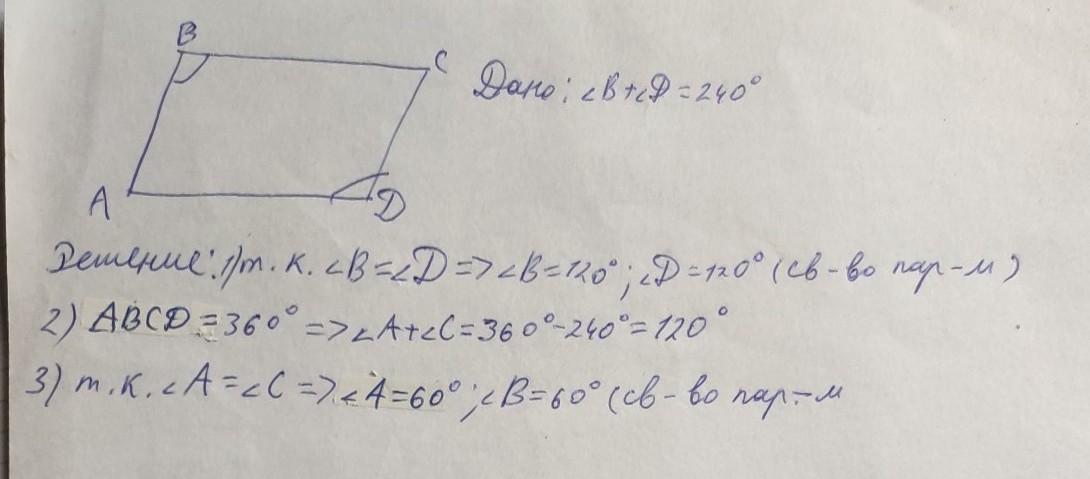 B
C
Дано: ∠B+∠D=240°
A
D
Решение: 1) т. к. ∠B=∠D=>∠B=120°; ∠D=120° (св-во пар-м)
2) ABCD=360°=>∠A+∠C=360°-240°=120°
3) т. к. ∠A=∠C=>∠A=60°; ∠B=60° (св-во пар-м